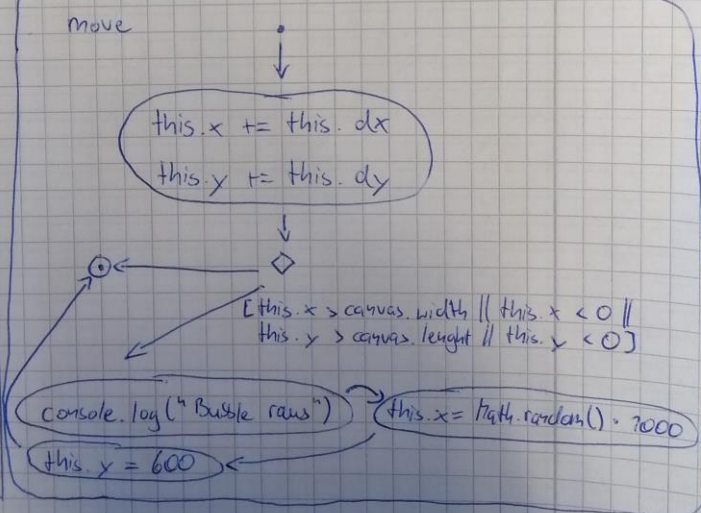 move
this.x += this.dx
this.y += this.dy
[this.x > canvas.width || this.x < 0 ||
this.y > canvas.lenght || this.y < 0]
console.log("Bubble raus")
this.x = Math.random() *
this.y = 600